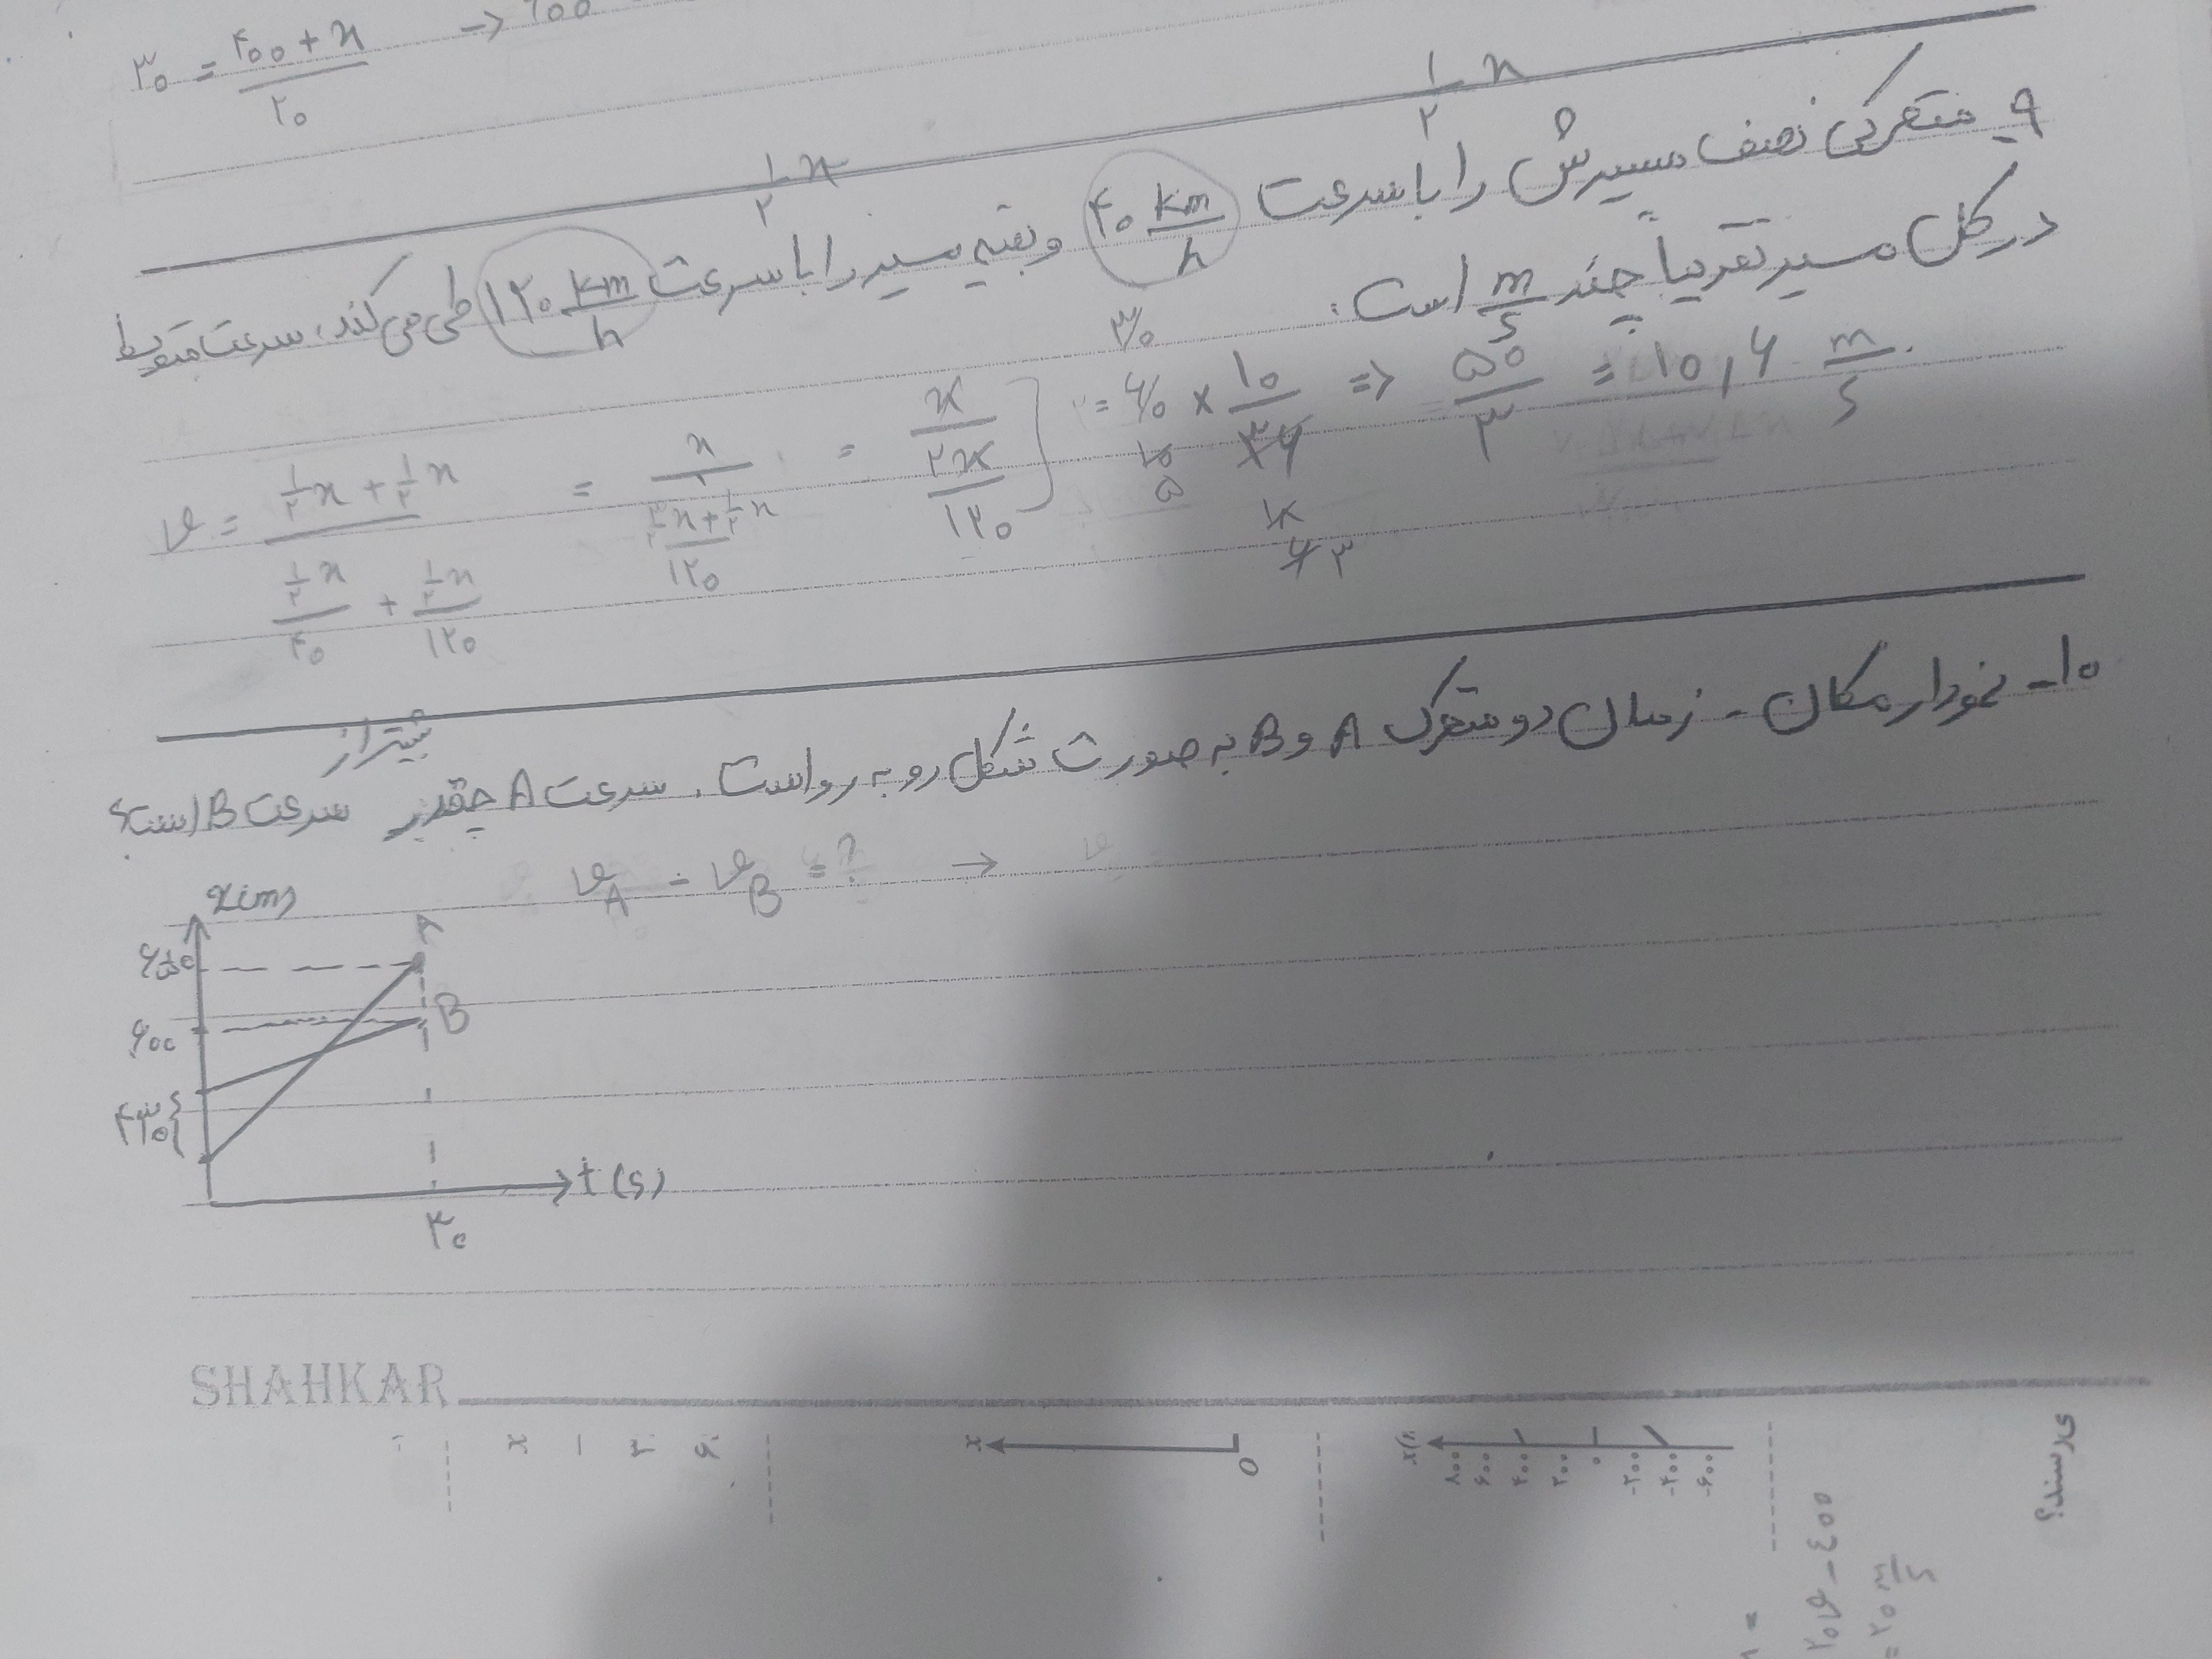 ۳۰ = (۴۰۰ + x) / ۲۰ →
۱/۲ x
۱/۲ x
۹- متحرکی نصف مسیرش را با سرعت ۴۰ km/h و بقیه مسیر را با سرعت ۱۲۰ km/h طی می‌کند، سرعت متوسط
در کل مسیر تقریباً چند m/s است؟
v = (۱/۲ x + ۱/۲ x) / ((۱/۲ x)/۴۰ + (۱/۲ x)/۱۲۰) = x / ((۳/۲ x + ۱/۲ x)/۱۲۰) = x / (۲x/۱۲۰) = ۶۰ × ۱۰/۳۶ => ۵۰/۳ = ۱۰,۶ m/s
۱۰- نمودار مکان - زمان دو متحرک A و B به صورت شکل رو به رو است. سرعت A چقدر بیشتر از سرعت B است؟
v_A - v_B = ? →
x(m)
A
۶۵۰
B
۶۰۰
۴۳۰
t (s)
۴۰
SHAHKAR
x
0
۸۰۰ ۶۰۰ ۴۰۰ ۲۰۰ ۰ -۲۰۰ -۴۰۰ -۶۰۰